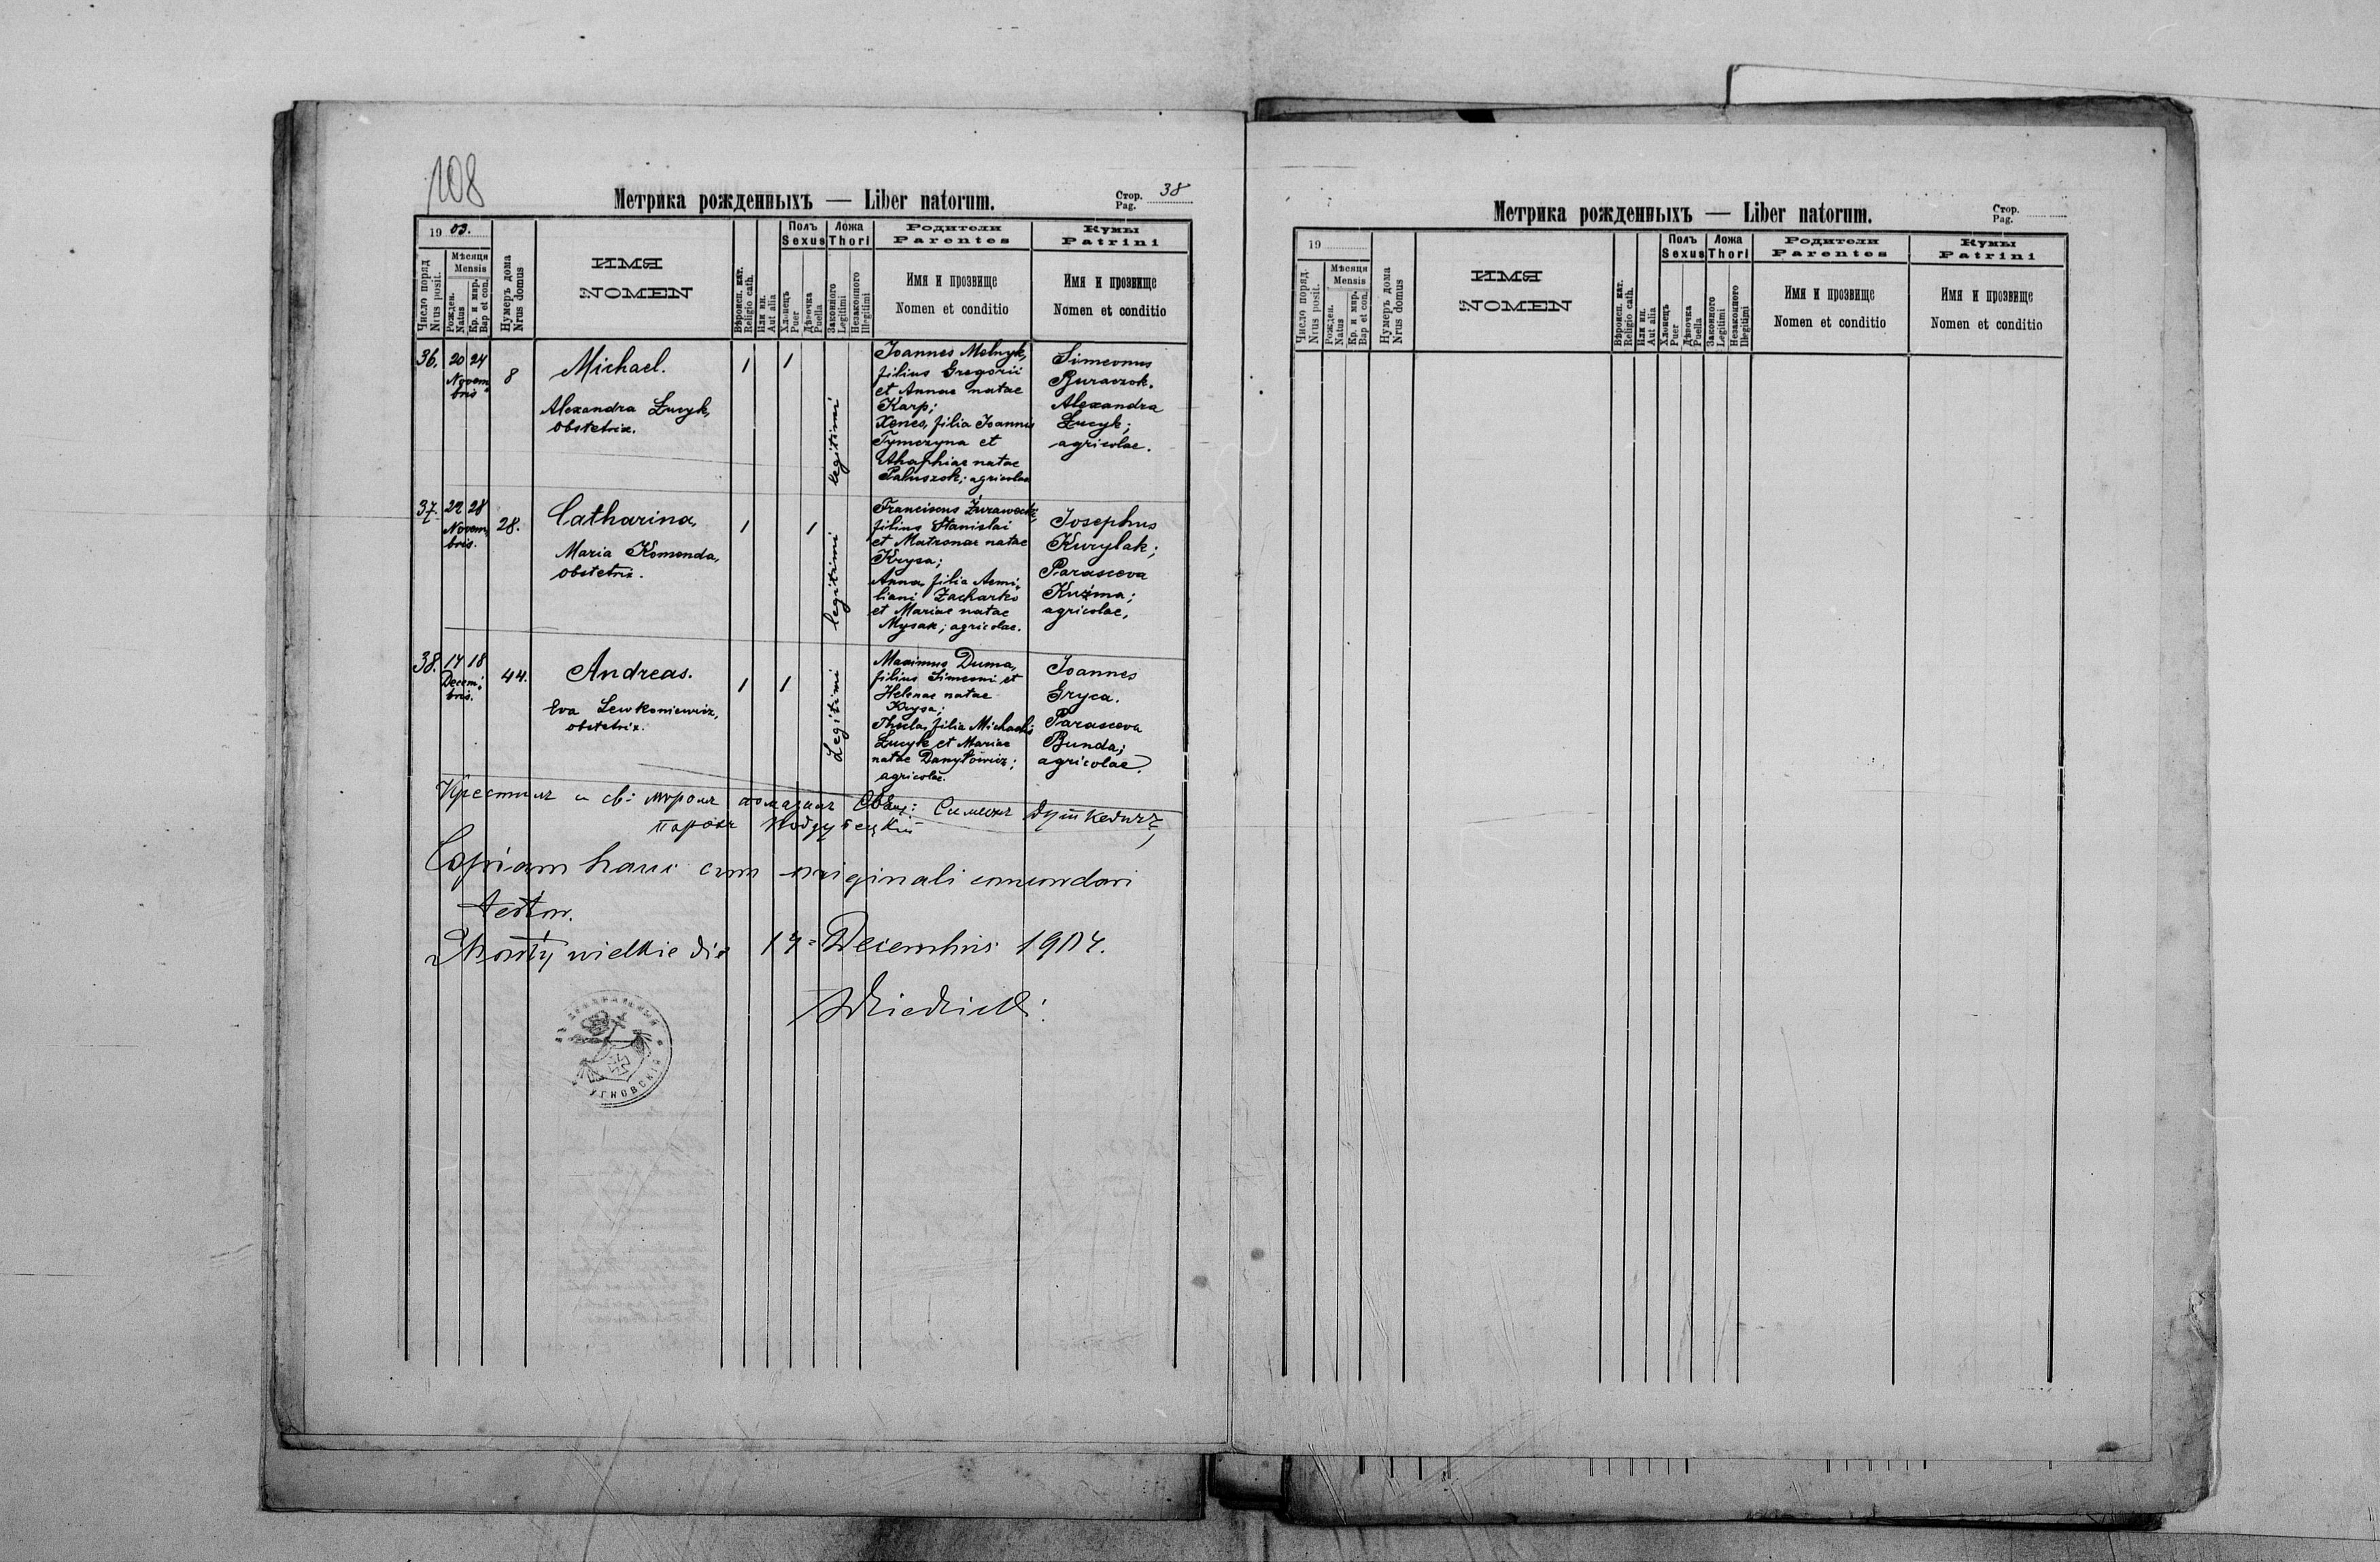 108
Метрика рожденныхъ — Liber natorum.
Стор. 38
Pag.
19 03.
Число поряд.
Nrus posit.
Мѣсяця
Mensis
Рожден.
Natus
Кр. и мѵр.
Bap et con.
Нумеръ дома
Nrus domus
ИМЯ
NOMEN
Вѣроисп. кат.
Religio cath.
Или ин.
Aut alia
Полъ
Sexus
Хлопецъ
Puer
Дѣвочка
Puella
Ложа
Thori
Законного
Legitimi
Незаконного
Illegitimi
Родители
Parentes
Имя и прозвище
Nomen et conditio
Кумы
Patrini
Имя и прозвище
Nomen et conditio
36. 20 24
Novem-
bris
8
Michael.
Alexandra Łucyk,
obstetrix.
1 1
legitimi
Joannes Melnyk,
filius Gregorii
et Annae natae
Karp;
Xenes, filia Joannis
Tymczyna et
Ahaphiae natae
Paluszok; agricolae
Simeonus
Buraczok.
Alexandra
Łucyk;
agricolae.
37. 22 28
Novem-
bris.
28.
Catharina,
Maria Komenda,
obstetrix.
1 1
legitimi
Franciscus Żurawecki,
filius Stanislai
et Matronae natae
Krysa;
Anna, filia Aemi-
liani Zacharko
et Mariae natae
Mysak; agricolae.
Josephus
Kurylak;
Parasceva
Kuźma;
agricolae,
38. 14 18
Decem-
bris.
44.
Andreas.
Eva Lewkoniewicz,
obstetrix.
1 1
Legitimi
Maximus Duma,
filius Simeoni et
Helenae natae
Krysa;
Thecla, filia Michaelis
Łucyk et Mariae
natae Danyłowicz;
agricolae.
Joannes
Gryca.
Parasceva
Bunda;
agricolae.
Крестилъ и св: мѵромъ помазалъ Свящ: Симеонъ
парохъ
Copiam hanc cum originali concordari
testor.
wielkie die 14 Decembris 1904.
УГНОВСКІЙ
Метрика рожденныхъ — Liber natorum.
Стор.
Pag.
19
Число поряд.
Nrus posit.
Мѣсяця
Mensis
Рожден.
Natus
Кр. и мѵр.
Bap et con.
Нумеръ дома
Nrus domus
ИМЯ
NOMEN
Вѣроисп. кат.
Religio cath.
Или ин.
Aut alia
Полъ
Sexus
Хлопецъ
Puer
Дѣвочка
Puella
Ложа
Thori
Законного
Legitimi
Незаконного
Illegitimi
Родители
Parentes
Имя и прозвище
Nomen et conditio
Кумы
Patrini
Имя и прозвище
Nomen et conditio